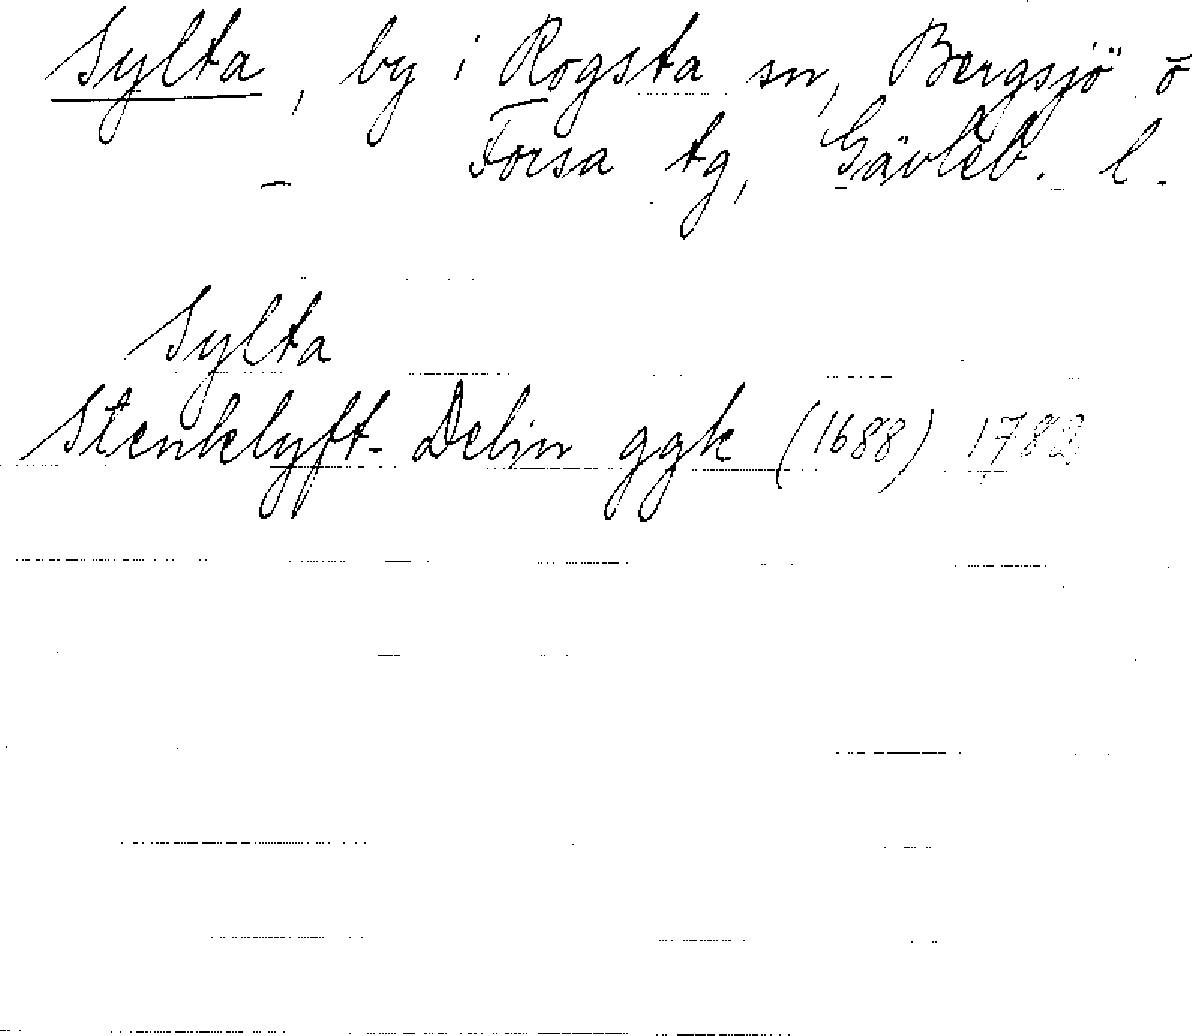 Sylta, by i Rogsta sn, Bergsjö o
Forsa tg, Gävleb. l.
Sylta
Stenklyft- Delin ggk (1688) 1782